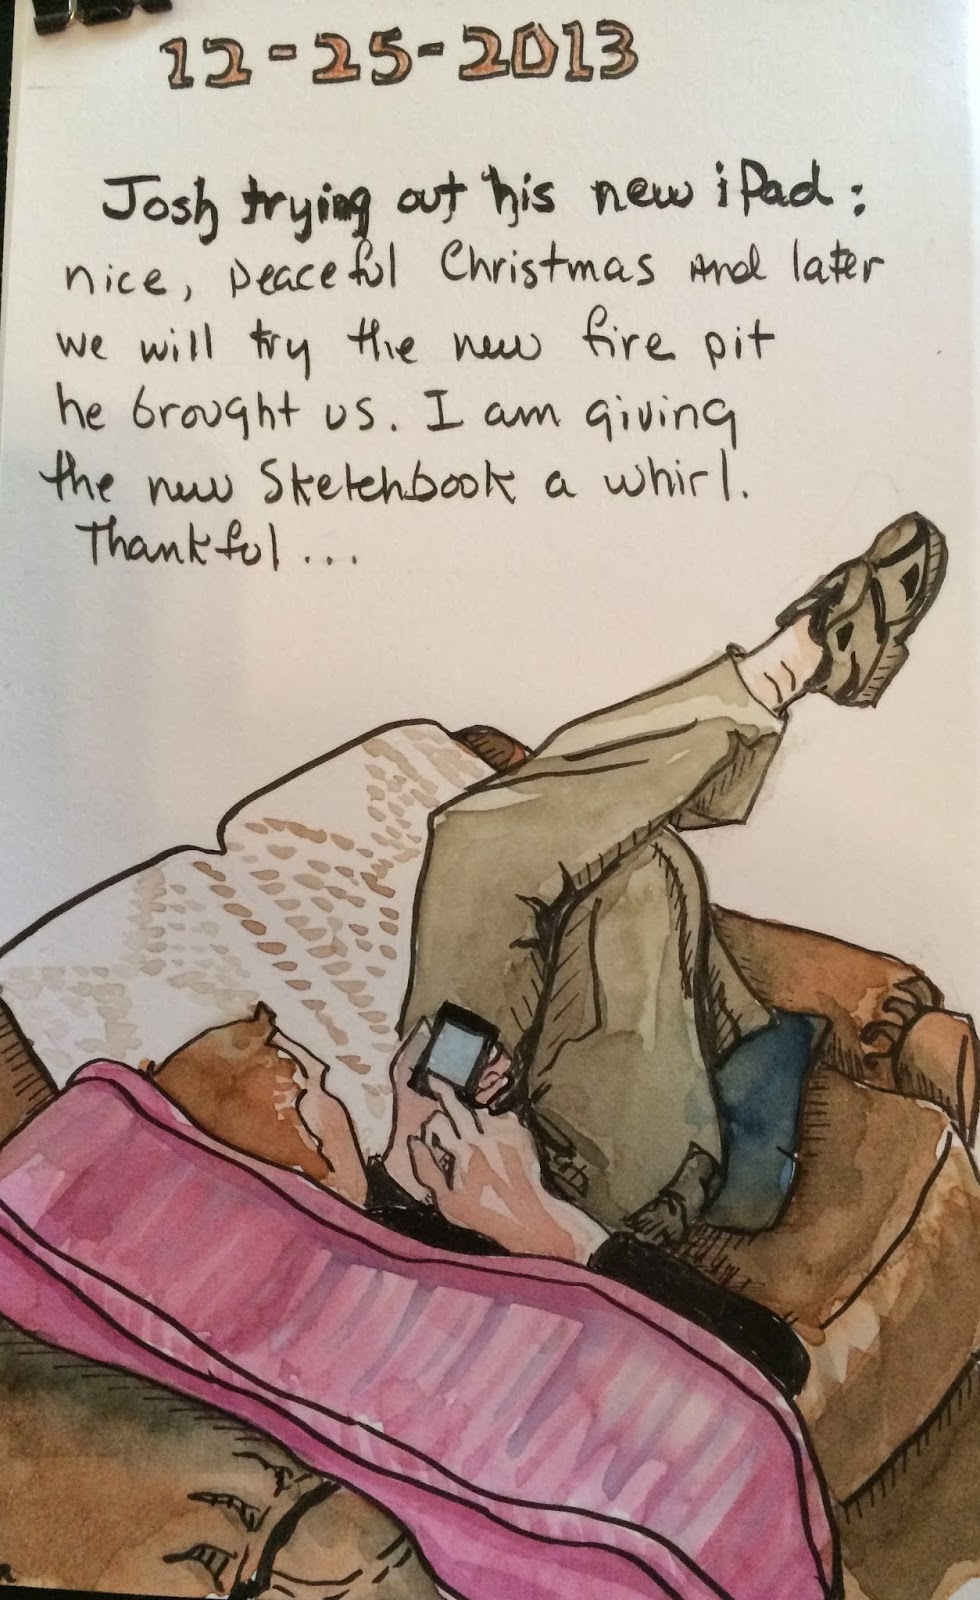 12-25-2013
Josh trying out his new iPad:
nice, peaceful Christmas And later
we will try the new fire pit
he brought us. I am giving
the new Sketchbook a whirl.
Thankful...